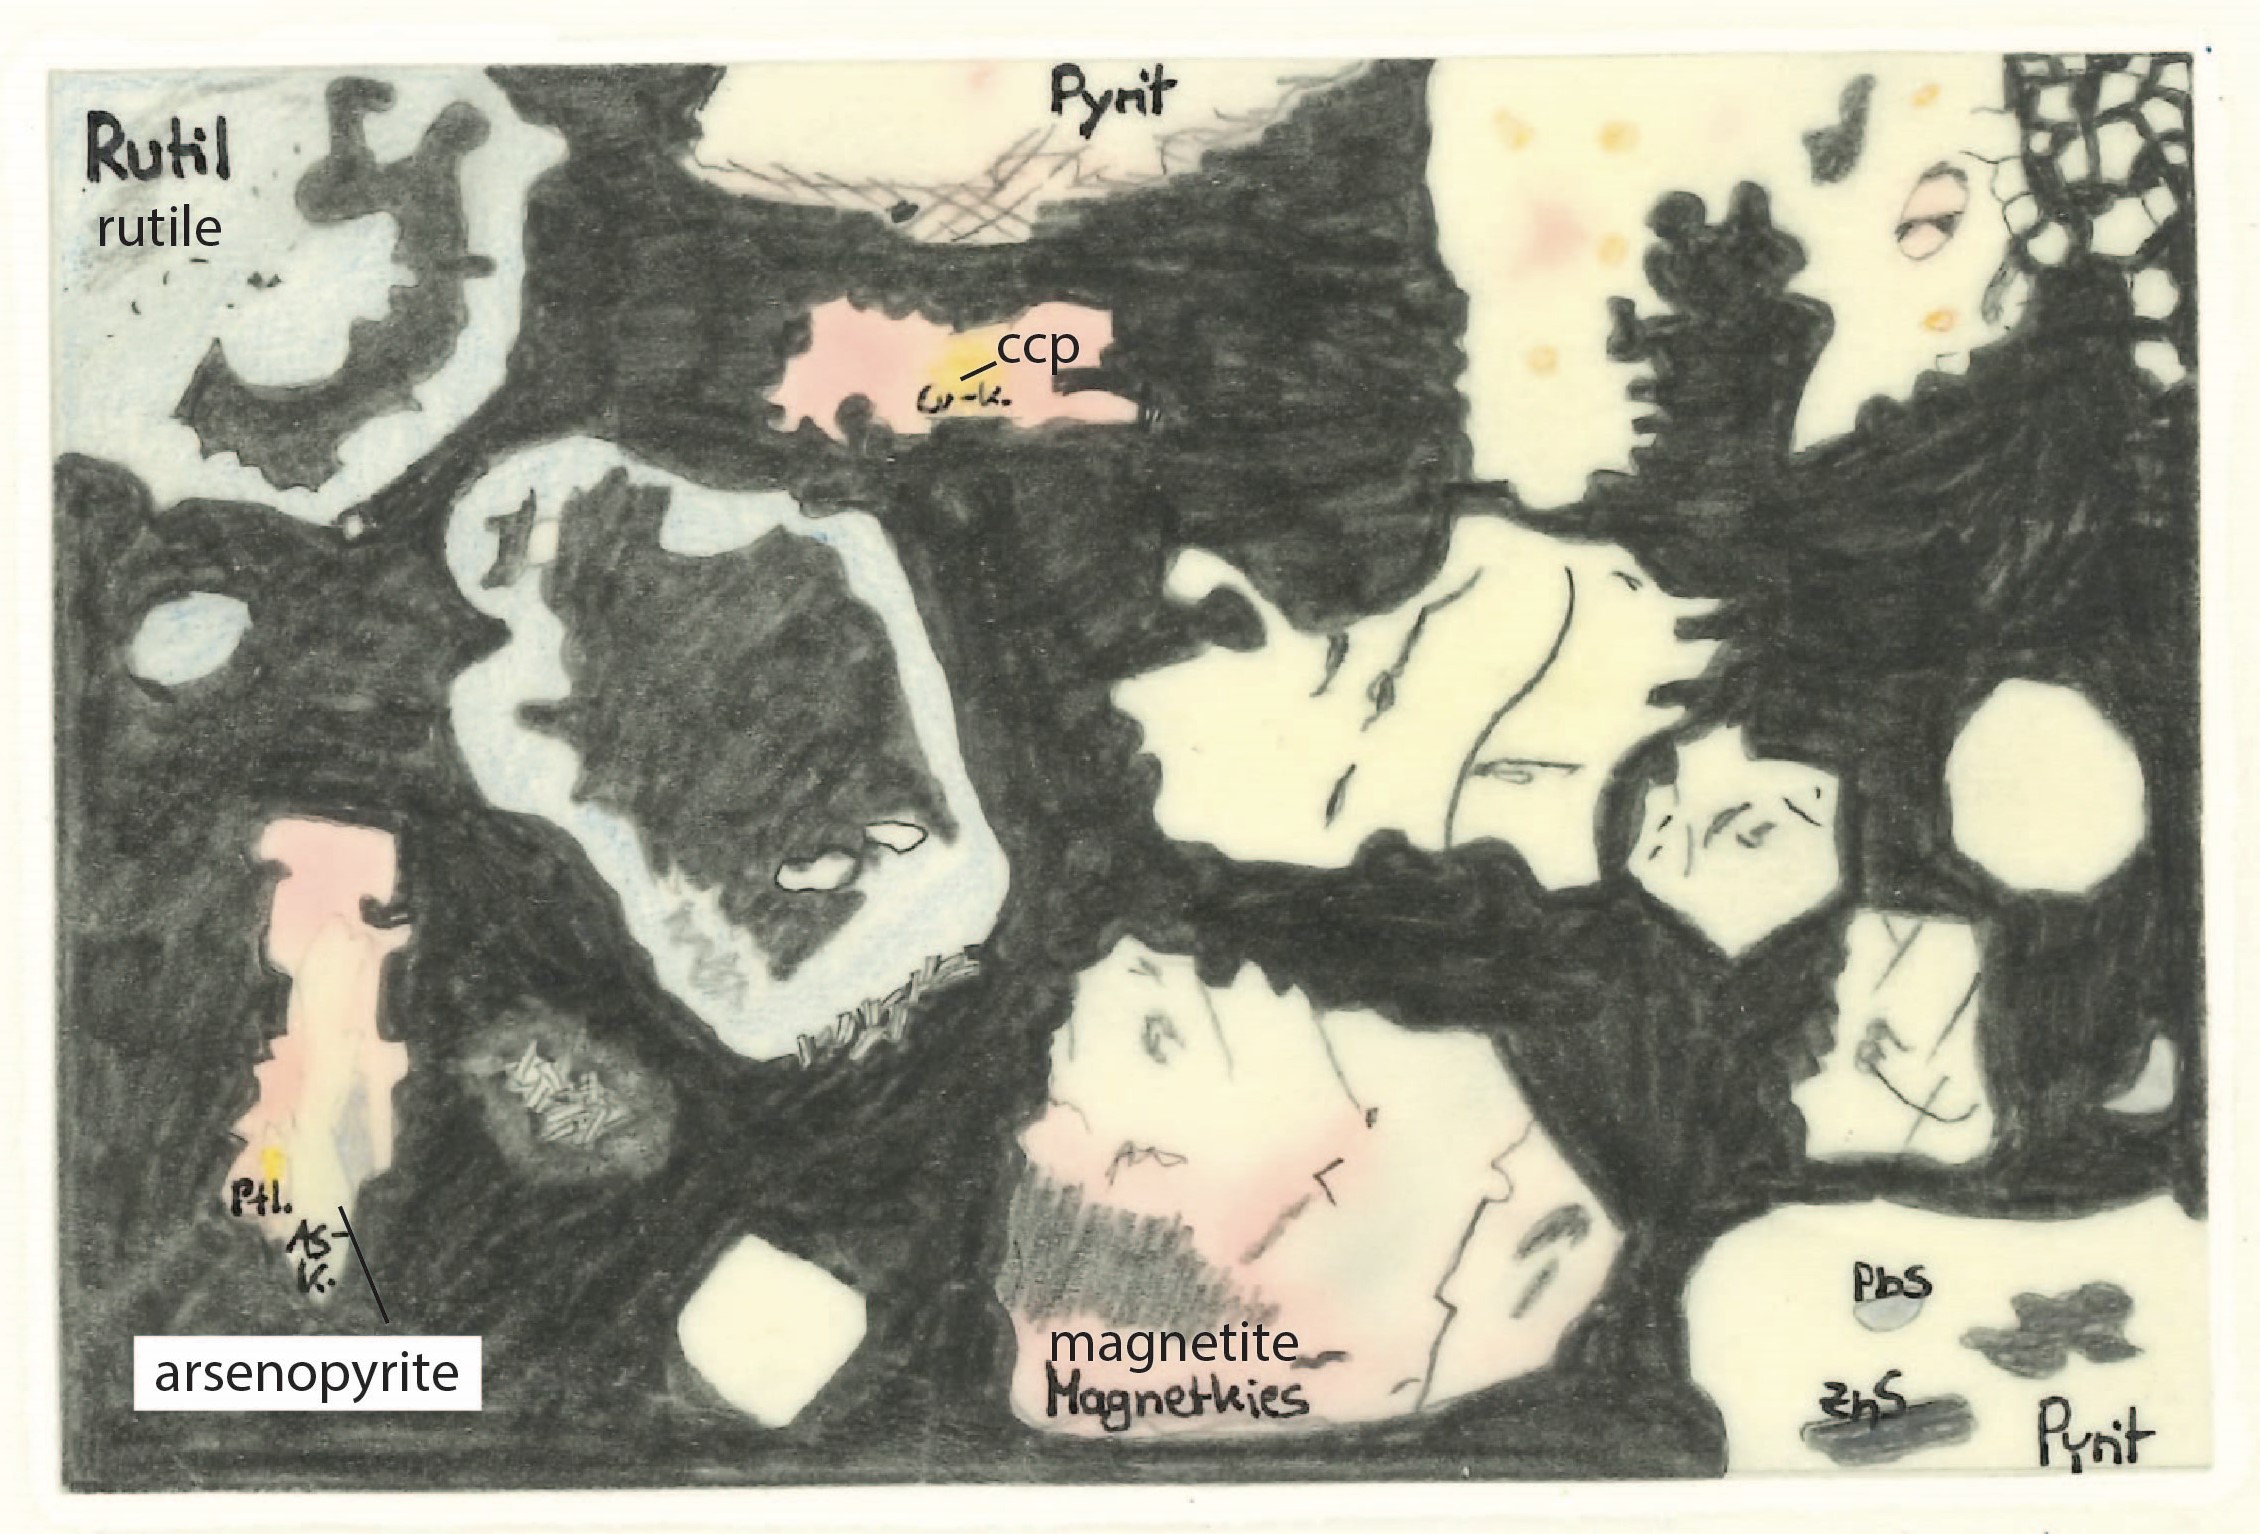 Rutil
rutile
Pyrit
ccp
Cu-k.
Ptl.
As-
k.
arsenopyrite
magnetite
Magnetkies
PbS
ZnS
Pyrit